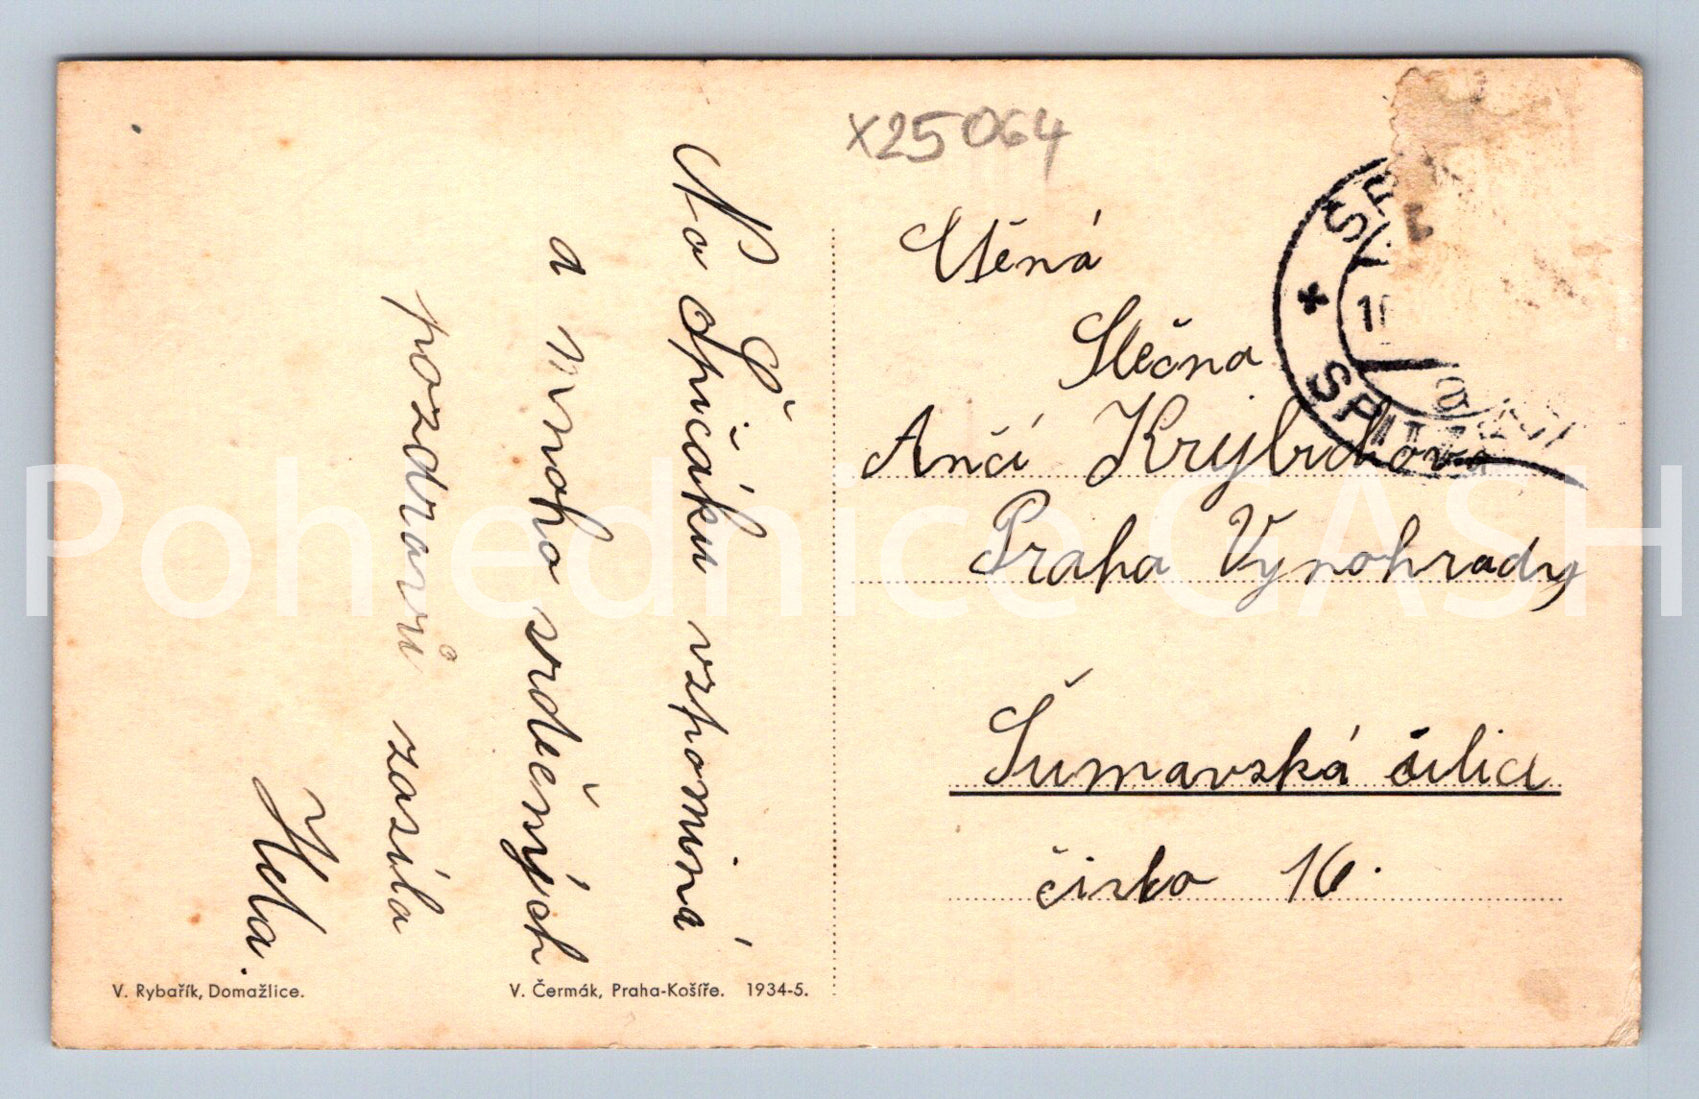 x25064
Na Špičáku vzpomíná
a mnoho srdečných
pozdravů zasílá
Hela.
Ctěná
Slečna
Anči Krýbichova
Praha Vynohrady
Šumavská ulice
čislo 16.
V. Rybařík, Domažlice.
V. Čermák, Praha-Košíře. 1934-5.
Pohlednice GASH